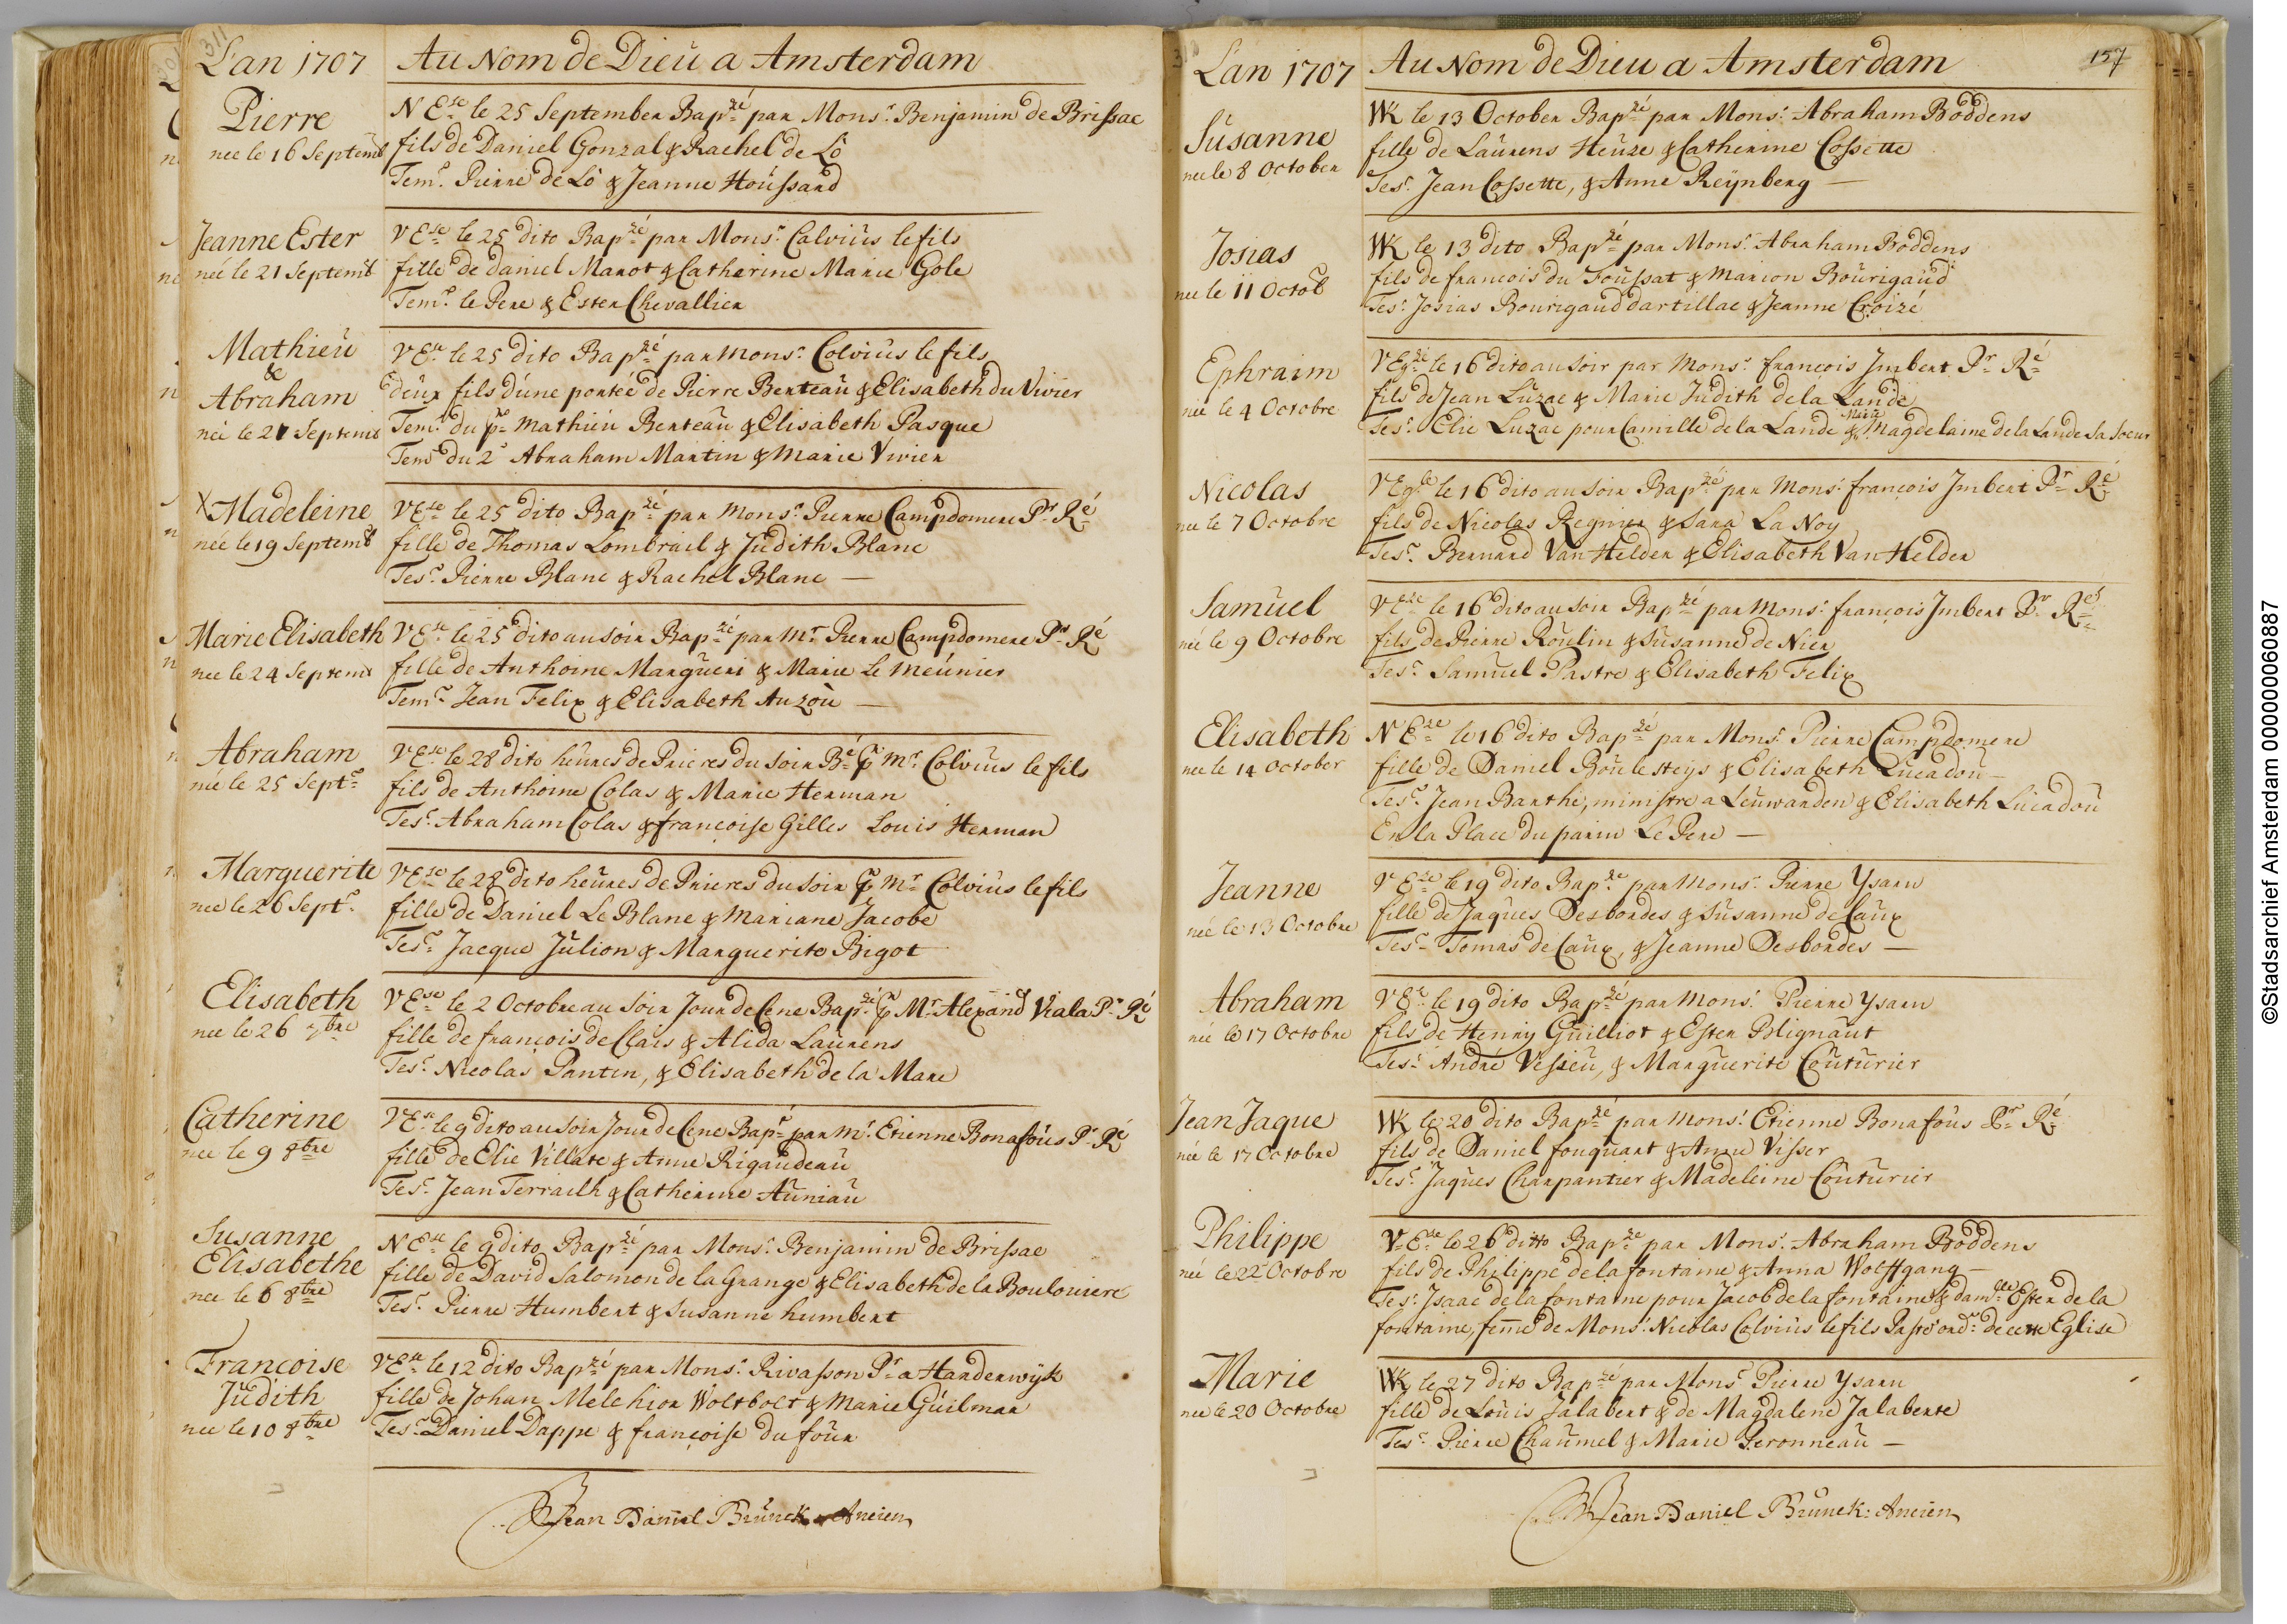 311
L'an 1707 Au Nom de Dieu a Amsterdam
Pierre
nee le 16 Septemb
N Ese le 25 September Bapzé par Monsr. Benjamin de Brissac
fils de Daniel Gonzal & Rachel de Lô
Temr. Pierre de Lô & Jeanne Houssard
Jeanne Ester
née le 21 Septemb
V Ese le 25 dito Bapzé par Monsr. Calvius le fils
fille de daniel Marot & Catherine Marie Gole
Temr. le Pere & Ester Chevallier
Mathieu
&
Abraham
née le 21 Septemb
V Ese le 25 dito Bapzé par Monsr. Colvius le fils
deux fils d'une portée de Pierre Berteau & Elisabeth du Vivier
Temr. du pr. Mathieu Berteau & Elisabeth Pasque
Temr. du 2e Abraham Martin & Marie Vivier
X Madeleine
née le 19 Septemb
V Ese le 25 dito Bapzé par Monsr. Pierre Campdomere Pr. Ré
fille de Thomas Lombrail & Judith Blanc
Tesr. Pierre Blanc & Rachel Blanc —
Marie Elisabeth
nee le 24 Septemb
V Ese le 25 dito au soir Bapzé par Mr. Pierre Campdomere Pr. Ré
fille de Anthoine Margueri & Marie Le Meunier
Temr. Jean Felix & Elisabeth Auzoù —
Abraham
née le 25 Septr.
V Ese le 28 dito heures de Prieres du soir Bé p Mr. Colvius le fils
fils de Anthoine Colas & Marie Herman
Tesr. Abraham Colas & françoise Gilles Louis Herman
Marguerite
nee le 26 Septr.
V Ese le 28 dito heures de Prieres du soir p Mr. Colvius le fils
fille de Daniel Le Blanc & Mariane Jacobe
Tesr. Jacque Julion & Marguerite Bigot
Elisabeth
nee le 26 7bre
V Ese le 2 Octobre au Soir Jour de Cene Bapzé p Mr. Alexand Viala Pr. Ré
fille de françois de Clais & Alida Laurens
Tesr. Nicolas Pantin, & Elisabeth de la Mare
Catherine
nee le 9 8bre
V Ese le 9 dito au Soir Jour de Cene Bapé par Mr. Etienne Bonafous Pr. Ré
fille de Elie Villate & Anne Rigaudeau
Tesr. Jean Terrailh & Catherine Auniau
Susanne
Elisabethe
nee le 6 8bre
N Ese le 9 dito Bapzé par Monsr. Benjamin de Brissac
fille de David Salomon de la Grange & Elisabeth de la Bouloniere
Tesr. Pierre Humbert & Susanne humbert
Françoise
Judith
nee le 10 8bre
V Ese le 12 dito Bapzé par Monsr. Rivasson Pr. a Harderwijk
fille de Johan Melchior Woltbolt & Marie Guilman
Tesr. Daniel Dappe & françoise du four
Jean Daniel Brunek Ancien
157
L'an 1707 Au Nom de Dieu a Amsterdam
Susanne
nee le 8 October
WK le 13 October Bapzé par Monsr. Abraham Boddens
fille de Laurens Heuze & Catherine Cossette
Tesr. Jean Cossette, & Anne Reijnberg —
Josias
nee le 11 Octob
WK le 13 dito Bapzé par Monsr. Abraham Boddens
fils de françois du Foussat & Marion Bourigaud
Tesr. Josias Bourigaud dartillac & Jeanne Croizé
Ephraim
née le 4 Octobre
V Egze le 16 dito au soir par Monsr. françois Imbert Pr. Ré
fils de Jean Luzac & Marie Judith de la Lande
Tesr. Elie Luzac pour Camille de la Lande & Marie Magdelaine de la Lande sa soeur
Nicolas
nee le 7 Octobre
V Egse le 16 dito au soir Bapzé par Monsr. françois Imbert Pr. Ré
fils de Nicolas Regnier & Sara La Noy
Tesr. Bernard Van Helder & Elisabeth Van Helder
Samuel
né le 9 Octobre
V Eze le 16 dito au soir Bapzé par Monsr. françois Imbert Pr. Ré
fils de Pierre Roulin & Susanne de Nier
Tesr. Samuel Pastre & Elisabeth Felix
Elisabeth
nee le 14 October
N Eze le 16 dito Bapzé par Monsr. Pierre Campdomere
fille de Daniel Boulesteijs & Elisabeth Lucadou —
Tesr. Jean Barthé, ministre a Leuwarden & Elisabeth Lucadou
En la Place du parin Le Pere —
Jeanne
née le 13 Octobre
V Eze le 19 dito Bapzé par Monsr. Pierre Ysarn
fille de Jaques Desbordes & Susanne de Caux
Tesr. Tomas de Caux, & Jeanne Desbordes —
Abraham
née le 17 Octobre
V Ese le 19 dito Bapzé par Monsr. Pierre Ysarn
fils de Henry Guilliot & Ester Blignaut
Tesr. André Vissieu, & Marguerite Couturier
Jean Jaque
née le 17 Octobre
WK le 20 dito Bapzé par Monsr. Etienne Bonafous Pr. Ré
fils de Daniel fouquart & Anne Visser
Tesr. Jaques Charpantier & Madeleine Couturier
Philippe
née le 22 Octobre
V Ese le 26 ditto Bapzé par Monsr. Abraham Boddens
fils de Philippe de la fontaine & Anna Wolffgang —
Tesr. Isaac de la fontaine pour Jacob de la fontaine & damlle Ester de la
fontaine, femme de Monsr. Nicolas Colvius le fils Pastr ordr. de cette Eglise
Marie
nee le 20 Octobre
WK le 27 dito Bapzé par Monsr. Pierre Ysarn
fille de Louis Jalabert & de Magdalene Jalaberte
Tesr. Pierre Chaumel & Marie Peronneau —
Jean Daniel Brunek: Ancien
©Stadsarchief Amsterdam 000000060887